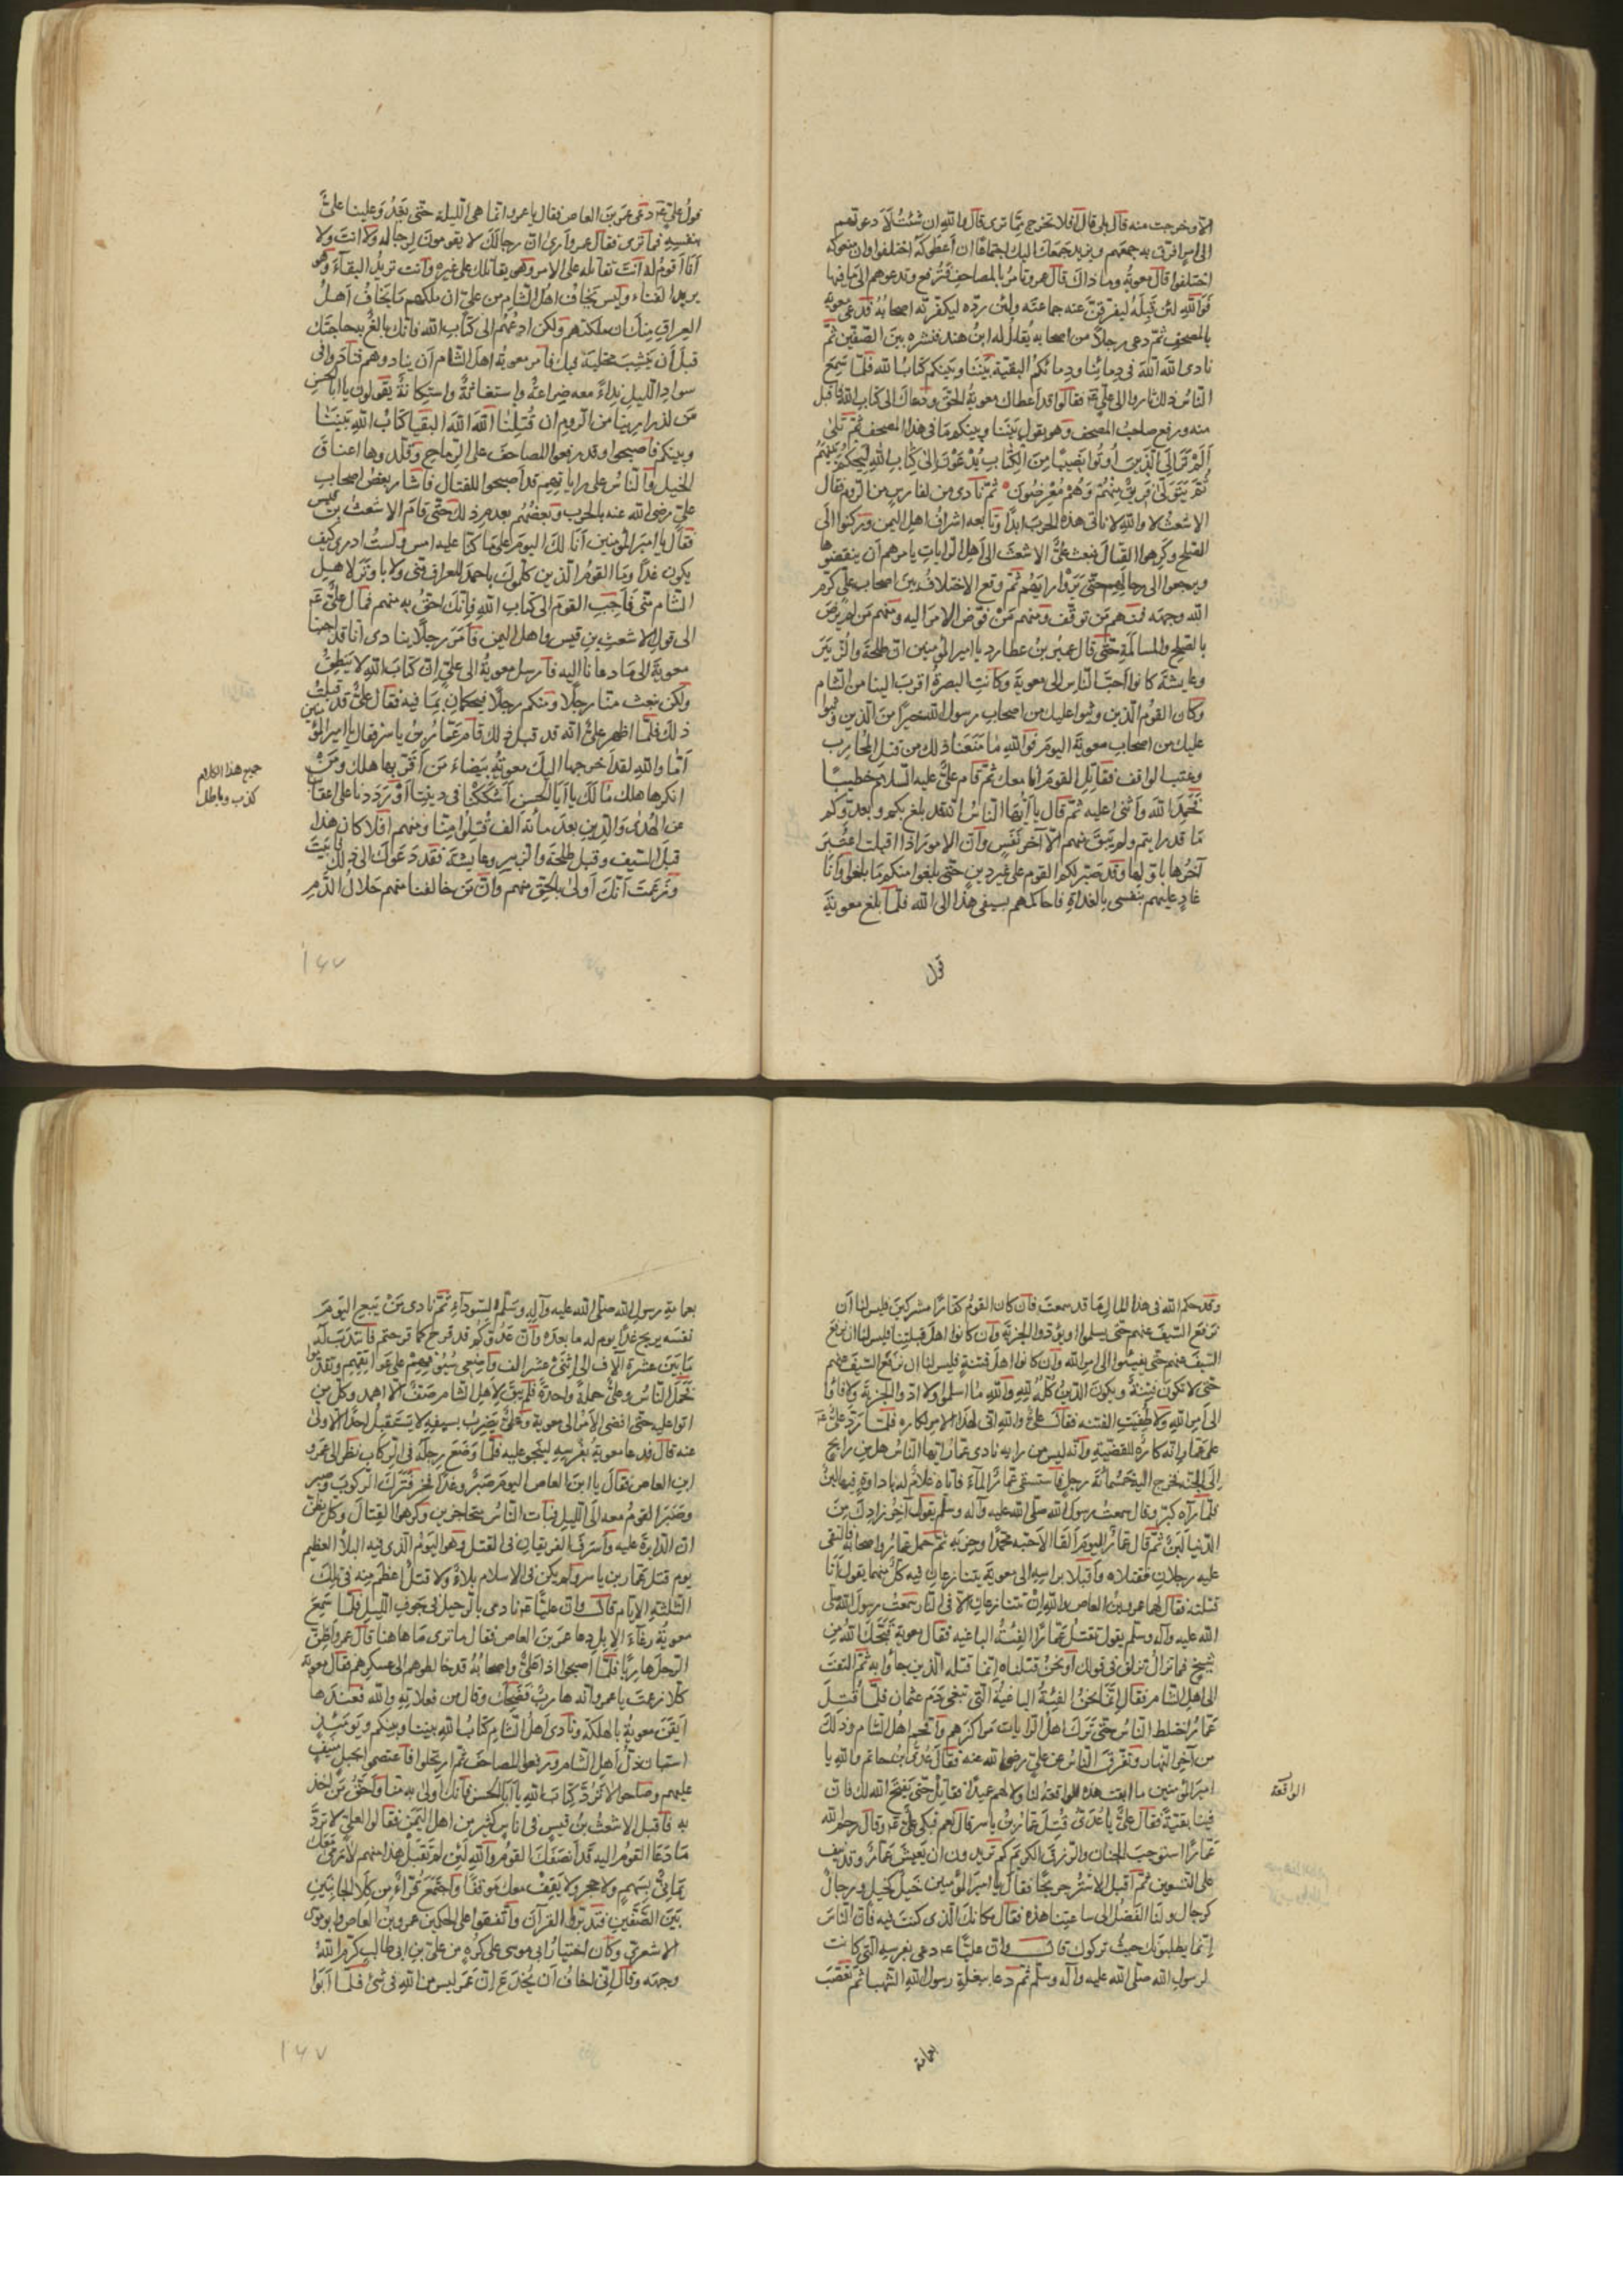 الا وخرجت منه قال بلى قال افلا تخرج مما ترى قال والله ان شئت لادعونهم
الى امر افرق به جمعهم ويزيد جمعك اليك اجتماعا ان اعطوكه اختلفوا وان منعوكه
اختلفوا قال معوية وما ذاك قال عمرو تامر بالمصاحف فترفع وتدعوهم الى ما فيها
فوالله لئن قبله ليفترقن عنه جماعته ولئن رده ليكفرنه اصحابه فدعى معوية
بالمصحف ثم دعى رجلا من اصحابه يقال له ابن هند فنشره بين الصفين ثم
نادى الله الله فى دمائنا ودمائكم البقية بيننا وبينكم كتاب الله فلما سمع
الناس ذلك ثاروا الى على فقالوا قد اعطاك معوية الحق ودعاك الى كتاب الله فاقبل
منه ورفع صاحب المصحف وهو يقول بيننا وبينكم ما فى هذا المصحف ثم تلى
الم تر الى الذين اوتوا نصيبا من الكتاب يدعون الى كتاب الله ليحكم بينهم
ثم يتولى فريق منهم وهم معرضون ثم نادى من لفارس من الروم فقال
الاشعث لا والله لا ناتى هذه الحرب ابدا وتابعه اشراف اهل اليمن وركنوا الى
الصلح وكرهوا القتال فبعث على الاشعث الى اهل الرايات يامرهم ان ينقضوها
ويرجعوا الى رحالهم حتى يروا رايهم ثم وقع الاختلاف بين اصحاب على كرم
الله وجهه فمنهم من توقف ومنهم من فوض الامر اليه ومنهم من لم يرض
بالصلح والمسالمة حتى قال عمير بن عطارد يا امير المؤمنين ان طلحة والزبير
وعايشة كانوا احب الناس الى معوية وكانت البصرة اقرب الينا من الشام
وكان القوم الذين وثبوا عليك من اصحاب رسول الله خيرا من الذين وثبوا
عليك من اصحاب معوية اليوم فوالله ما منعنا ذلك من قتل المحارب
وعتب الواقف فقاتل القوم انا معك ثم قام على عليه السلام خطيبا
فحمد الله واثنى عليه ثم قال يا ايها الناس انه قد بلغ بكم وبعدوكم
ما قد رايتم ولم يبق منهم الا آخر نفس وان الامور اذا اقبلت اعتبر
آخرها باولها وقد صبر لكم القوم على غير دين حتى بلغوا منكم ما بلغوا وانا
غاد عليهم بنفسى بالغداة فاحاكمهم بسيفى هذا الى الله فلما بلغ معوية
قول
قول على دعى عمرو بن العاص فقال يا عمرو انما هى الليلة حتى يغدو علينا على
بنفسه فما ترى فقال عمرو ارى ان رجالك لا يقومون لرجاله ولا انت ولا
انا اقوم له انت تقاتله على الامر وهو يقاتلك على غيره وانت تريد البقاء وهو
يريد الفناء وليس يخاف اهل الشام من على ان ملكهم ما يخاف اهل
العراق منك ان ملكتهم ولكن ادعهم الى كتاب الله فانك بالغ به حاجتك
قبل ان ينشب مخلبه فيك فامر معوية اهل الشام ان ينادوهم فنادوا فى
سواد الليل نداء معه ضراعة واستغاثة واستكانة يقولون يا ابا الحسن
من لذرارينا من الروم ان قتلنا الله الله البقيا كتاب الله بيننا
وبينكم فاصبحوا وقد رفعوا المصاحف على الرماح وقلدوها اعناق
الخيل والناس على راياتهم قد اصبحوا للقتال فاشار بعض اصحاب
على رضى الله عنه بالحرب وبعضهم بعد ذلك حتى قام الاشعث بن قيس
فقال يا امير المؤمنين انا لك اليوم على ما كنا عليه امس ولست ادرى كيف
يكون غدا وما القوم الذين كلموك باحمد للعراق منى ولا باوتر لاهل
الشام منى فاجب القوم الى كتاب الله فانك احق به منهم فمال على
الى قول الاشعث بن قيس واهل اليمن فامر رجلا ينادى انا قد اجبنا
معوية الى ما دعانا اليه فارسل معوية الى على ان كتاب الله لا ينطق
ولكن نبعث منا رجلا ومنكم رجلا فيحكمان بما فيه فقال على قد قبلت
ذلك فلما اظهر على انه قد قبل ذلك قام عمار بن ياسر فقال يا امير المؤمنين
اما والله لقد اخرجها اليك معوية بيضاء من اقر بها هلك ومن
انكرها هلك ما لك يا ابا الحسن اشككتنا فى ديننا او تردنا على اعقابنا
عن الهدى والدين بعد مائة الف قتلوا منا ومنهم افلا كان هذا
قبل السيف وقبل طلحة والزبير وعايشة فقد دعوك الى ذلك فابيت
وزعمت انك اولى بالحق منهم وان من خالفنا منهم حلال الدم
جميع هذا الكلام
كذب وباطل
١٦٧
وقد حكم الله فى هذا الحال ما قد سمعت فان كان القوم كفارا مشركين فليس لنا ان
نرفع السيف عنهم حتى يسلموا او يؤدوا الجزية وان كانوا اهل قبلتنا فليس لنا ان نرفع
السيف عنهم حتى يفيئوا الى امر الله وان كانوا اهل فتنة فليس لنا ان نرفع السيف عنهم
حتى لا تكون فتنة ويكون الدين كله لله والله ما اسلموا ولا ادوا الجزية ولا فاؤا
الى امر الله ولا طفيت الفتنة فقال على والله انى لهذا الامر لكاره فلما رد على
على عمار انه كاره للقضية وانه ليس من رايه نادى عمار ايها الناس هل من رايح
الى الجنة فخرج اليه خمسمائة رجل فاستسقى عمار الماء فاتاه غلام له باداوة فيها لبن
فلما رآه كبر وقال سمعت رسول الله صلى الله عليه وآله وسلم يقول آخر زادك من
الدنيا لبن ثم قال عمار اليوم القا الاحبه محمدا وحزبه ثم حمل عمار واصحابه فالتقى
عليه رجلان فقتلاه واقبلا براسه الى معوية يتنازعان فيه كل منهما يقول انا
قتلته فقال لهما عمرو بن العاص والله ان تتنازعان الا فى النار سمعت رسول الله صلى
الله عليه وآله وسلم يقول تقتل عمارا الفئة الباغيه فقال معوية قبحك الله من
شيخ فما تزال تزلق فى قولك اونحن قتلناه انما قتله الذين جاؤا به ثم التفت
الى اهل الشام فقال انما نحن الفئة الباغية التى تبغى دم عثمان فلما قتل
عمار اختلط الناس حتى ترك اهل الرايات مراكزهم واقحم اهل الشام وذلك
من آخر النهار وتفرق الناس عن على رضى الله عنه فقال عدى بن حاتم والله يا
امير المؤمنين ما ابقت هذه الواقعة لنا ولا لهم عميدا فقاتل حتى يفتح الله لك فان
فينا بقية فقال على يا عدى قتل عمار بن ياسر قال نعم فبكى على وقال رحم الله
عمارا استوجب الجنان والرزق الكريم كم تريدون ان يعيش عمار وقد نيف
على التسعين ثم اقبل الاشتر جريحا فقال يا امير المؤمنين خيل كخيل ورجال
كرجال ولنا الفضل الى ساعتنا هذه فقال مكانك الذى كنت فيه فان الناس
انما يطلبونك حيث تركوك قال وان عليا دعى بفرسه التى كانت
لرسول الله صلى الله عليه وآله وسلم ثم دعا ببغلة رسول الله الشهبا ثم تعصب
الواقعة
بعمامة
بعمامة رسول الله صلى الله عليه وآله وسلم السوداء ثم نادى من يبيع اليوم
نفسه يربح غدا يوم له ما بعده وان عدوكم قد قرح كما قرحتم فانتدب له
ما بين عشرة آلاف الى اثنى عشر الف واضعى سيوفهم على عواتقهم وتقدموا
فحمل الناس وعلى حملة واحدة فلم يبق لاهل الشام صف الا اهمد وكل من
اتوا عليه حتى افضى الامر الى معوية وعلى يضرب بسيفه لا يستقبل احدا الا ولى
عنه قال فدعا معوية بفرسه لينجو عليه فلما وضع رجله فى الركاب نظر الى عمرو
ابن العاص فقال يا ابن العاص اليوم صبر وغدا فخر فترك الركوب وصبر
وصبر القوم معه الى الليل فبات الناس متحاجزين وكرهوا القتال وكل يظن
ان الدايرة عليه واسرف الفريقان فى القتل وهو اليوم الذى فيه البلاء العظيم
يوم قتل عمار بن ياسر ولم يكن فى الاسلام بلاء ولا قتل اعظم منه فى تلك
الثلثة الايام قال وان عليا نادى بالرحيل فى جوف الليل فلما سمع
معوية رغاء الابل دعا عمرو بن العاص فقال ما ترى ما هاهنا قال عمرو اظن
الرجل هاربا فلما اصبحوا اذا على واصحابه قد خالطوهم الى عسكرهم فقال معوية
كلا زعمت يا عمرو انه هارب فضحك وقال من فعلاته والله فعندها
ايقن معوية بالهلكة ونادى اهل الشام كتاب الله بيننا وبينكم ويومئذ
استبان ذل اهل الشام ورفعوا المصاحف ثم ارتحلوا فاعتصموا بجبل منيف
عليهم وصاحوا لا ترد كتاب الله يا ابا الحسن فانك اولى به منا واحق من اخذ
به فاقبل الاشعث بن قيس فى اناس كثير من اهل اليمن فقالوا لعلى لا ترد
ما دعا القوم اليه قد انصفك القوم والله لئن لم تقبل هذا منهم لا نرمى معك
يمانى بسهم ولا حجر ولا يقف معك موقفا واجتمع قراء من كلا الجانبين
بين الصفين فتدبروا القرآن واتفقوا على الحكمين عمرو بن العاص وابو موسى
الاشعرى وكان اختيار ابى موسى على كره من على بن ابى طالب كرم الله
وجهه وقال انى اخاف ان يخدع ان عمرو ليس من الله فى شئ فلما ابوا
١٦٧